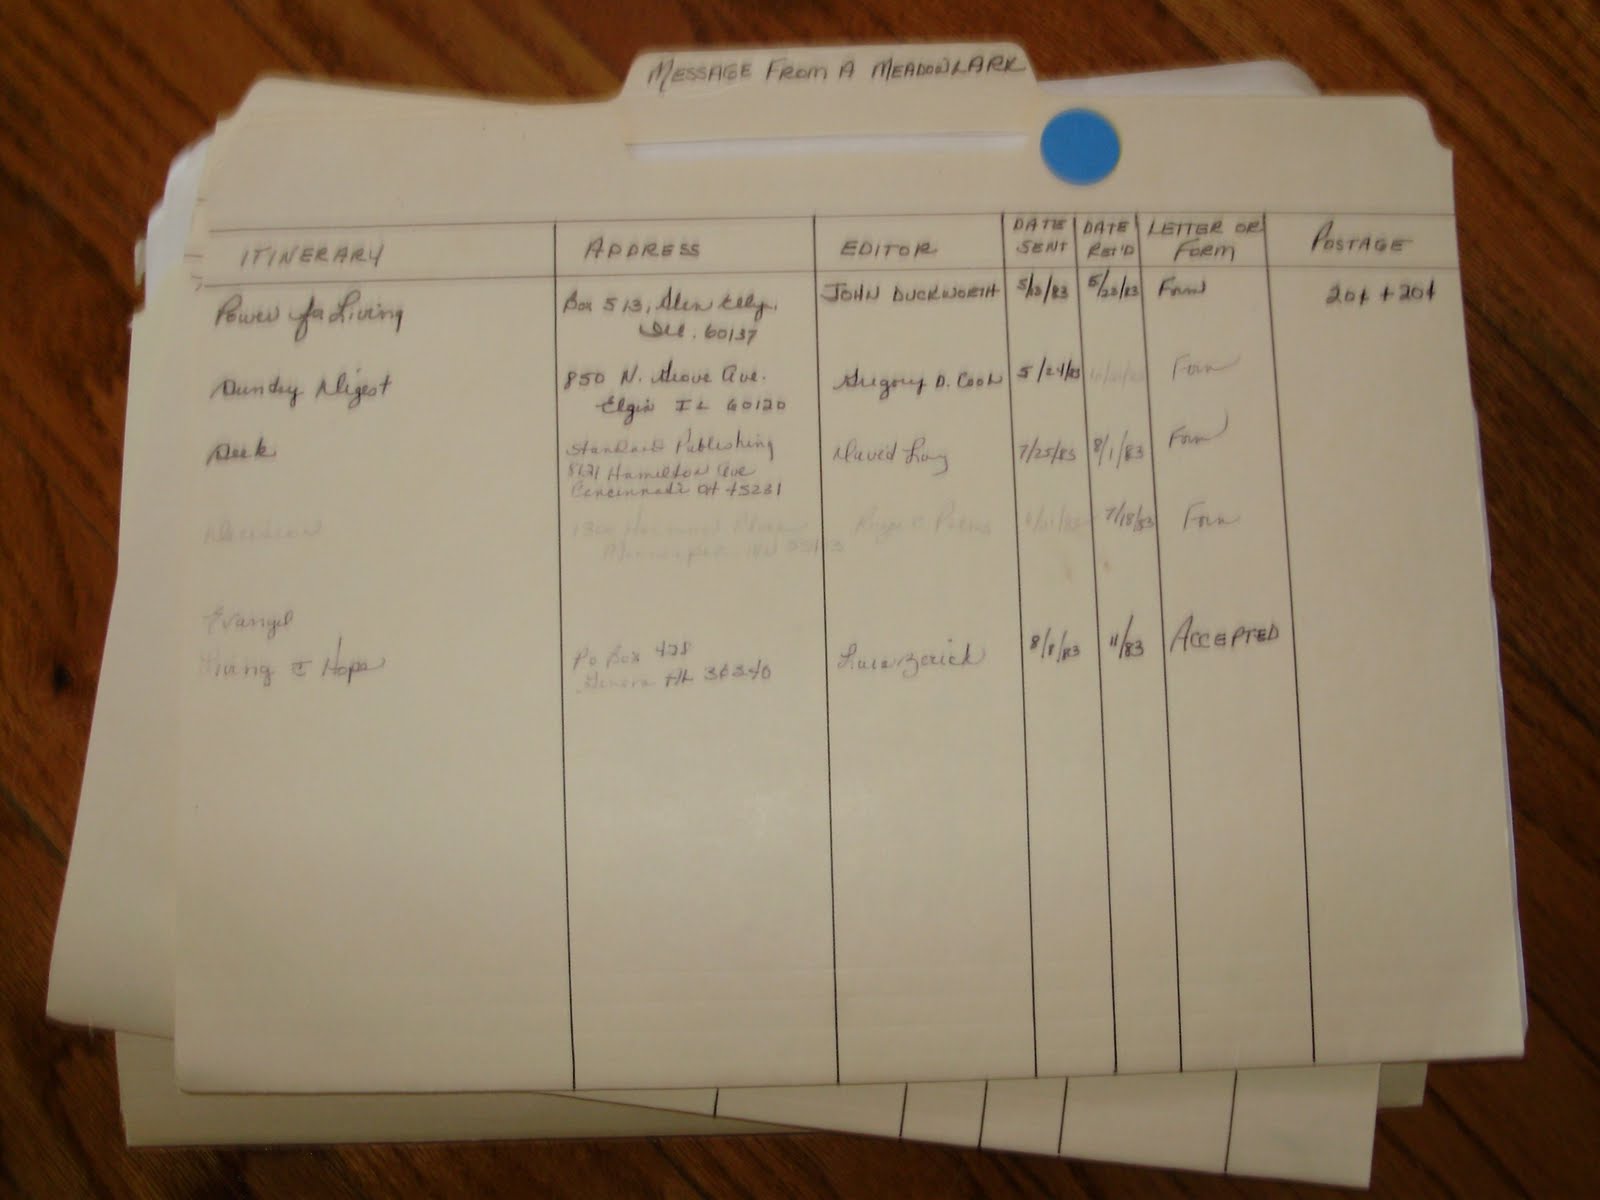 MESSAGE FROM A MEADOWLARK
ITINERARY ADDRESS EDITOR DATE SENT DATE RET'D LETTER OR FORM POSTAGE
Power for Living Box 513, Glen Ellyn, JOHN DUCKWORTH 5/23/83 Form 20¢ + 20¢
Ill. 60137
Sunday Digest 850 N. Grove Ave. Gregory D. Cook 5/24/83 Form
Elgin IL 60120
Seek Standard Publishing David 7/25/83 8/1/83 Form
8121 Hamilton Ave
Cincinnati OH 45231
Decision Roger Palms 7/18/83 Form
Evangel
Living & Hope PO Box 8/8/83 11/83 ACCEPTED
Geneva AL 36340